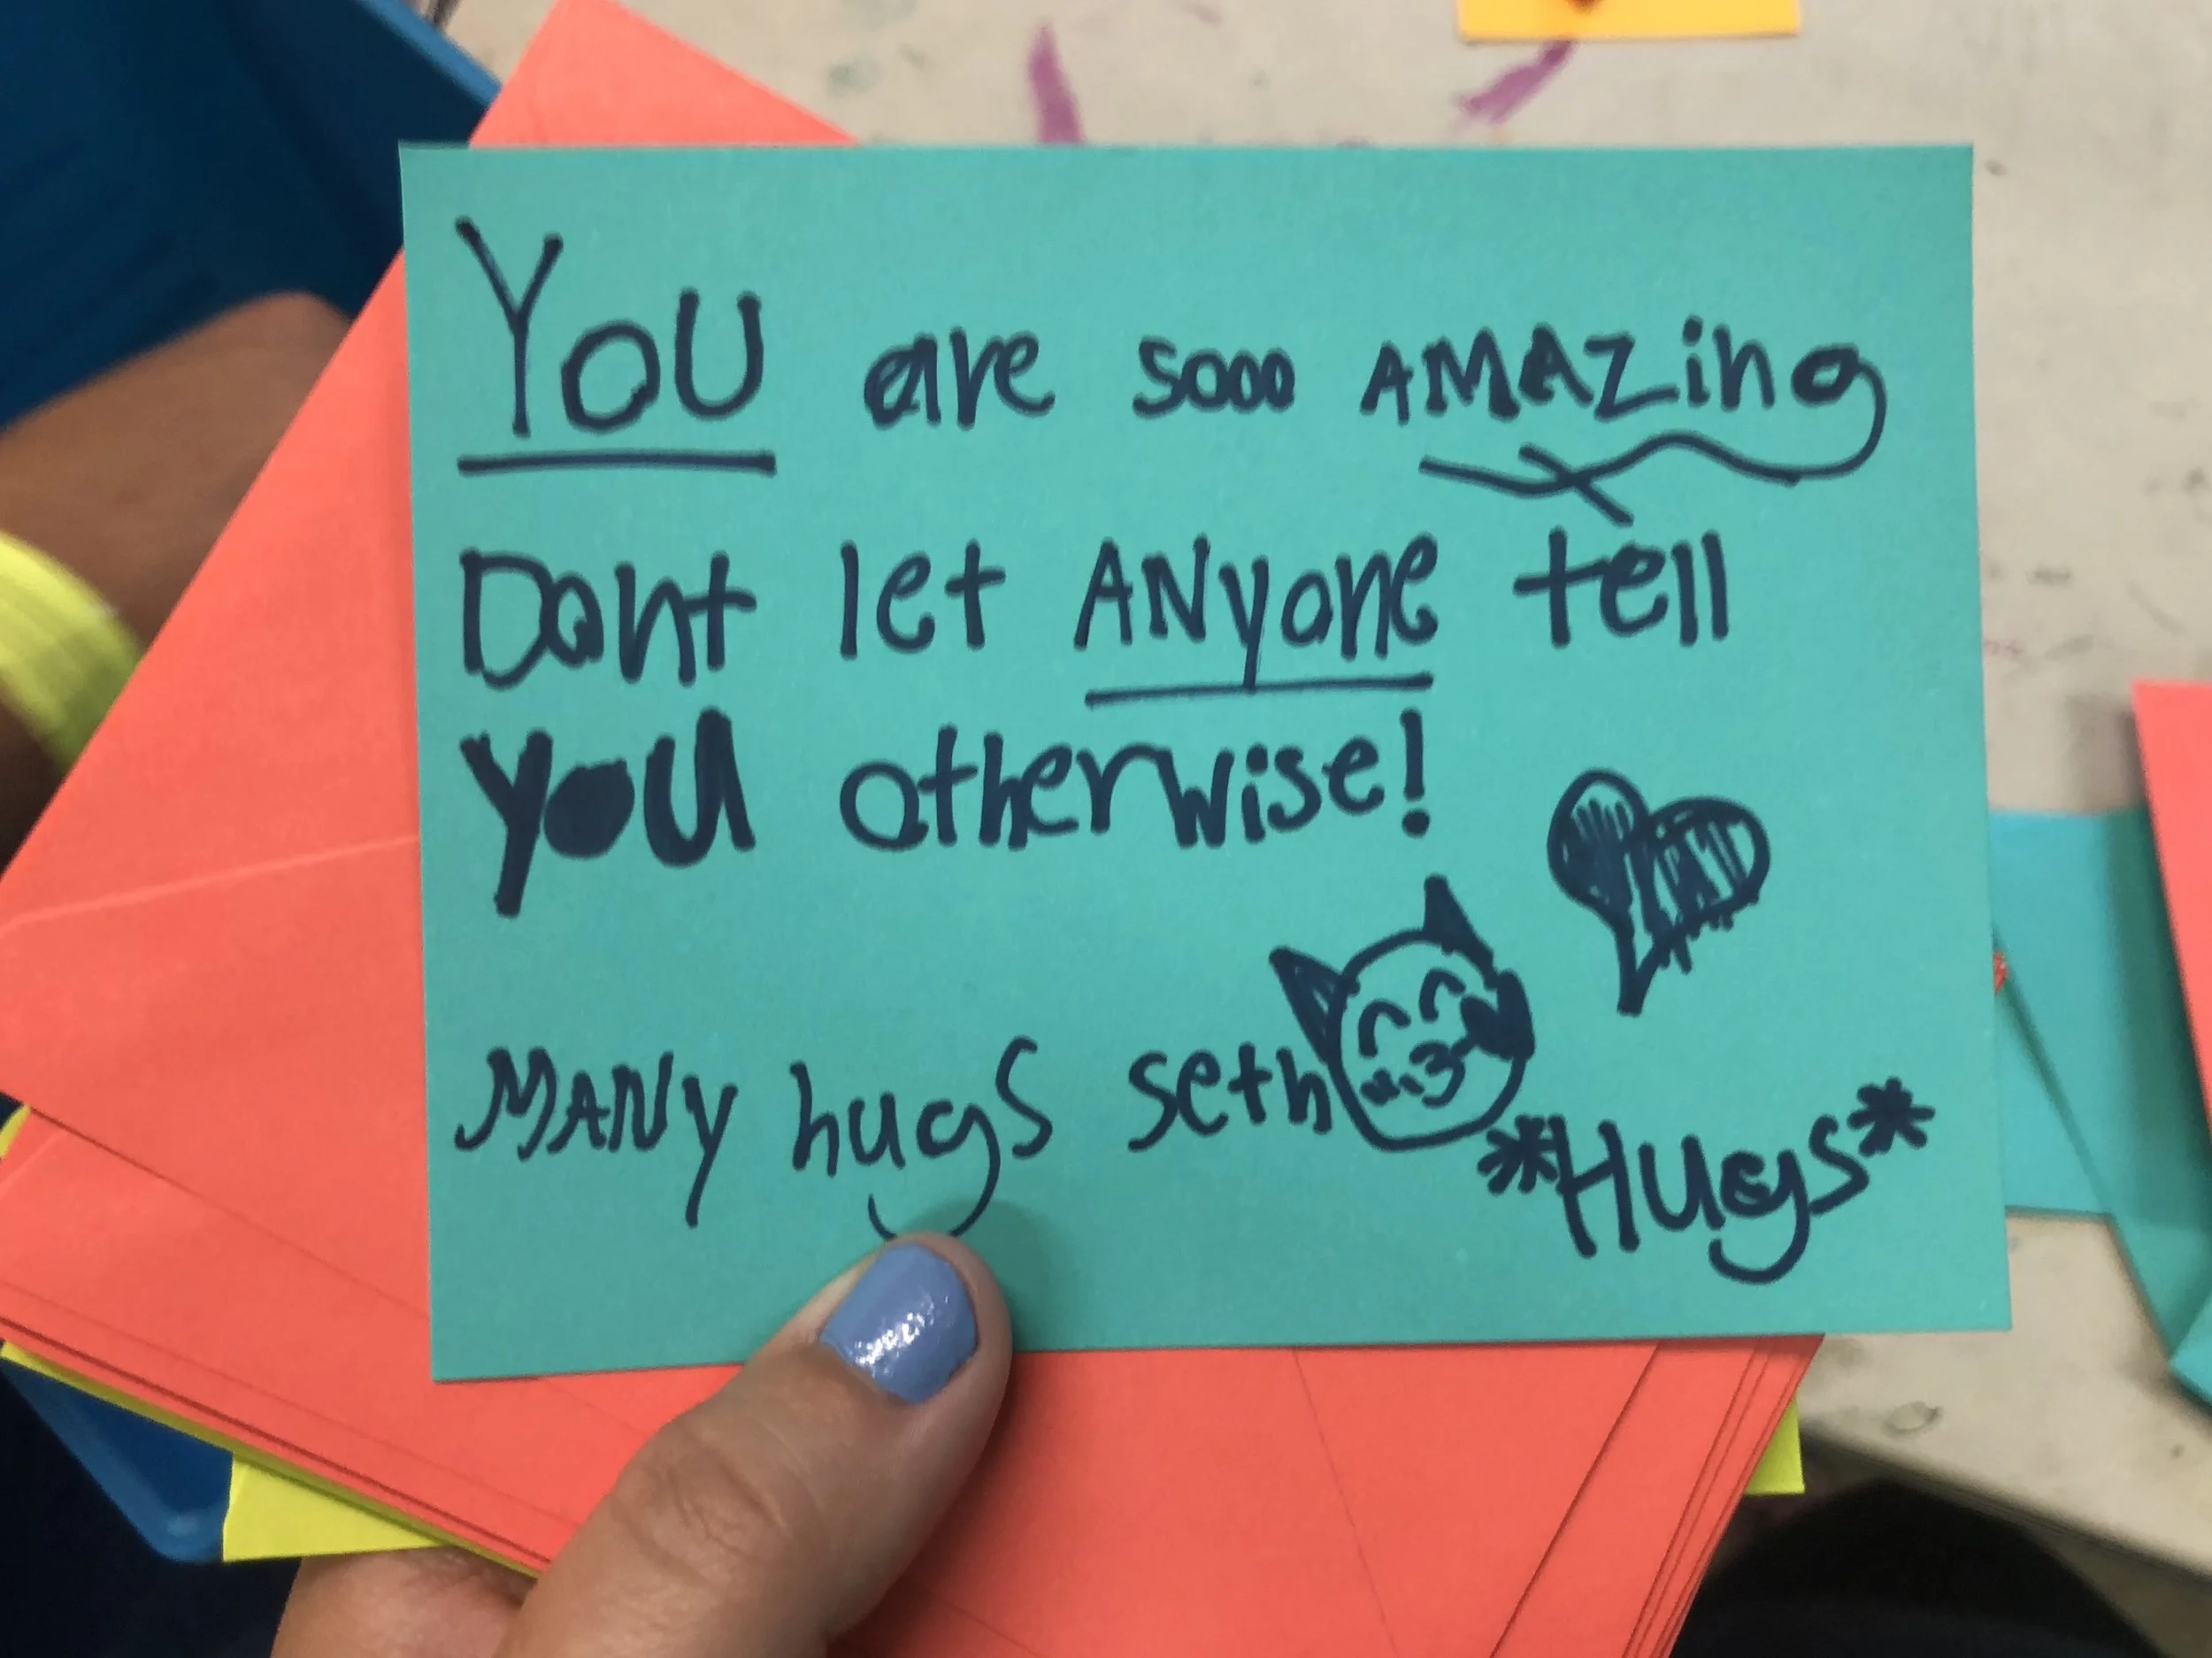 YoU are sooo AMAZing
Dont let ANyone tell
you otherwise!
MANy hugs seth
*Hugs*